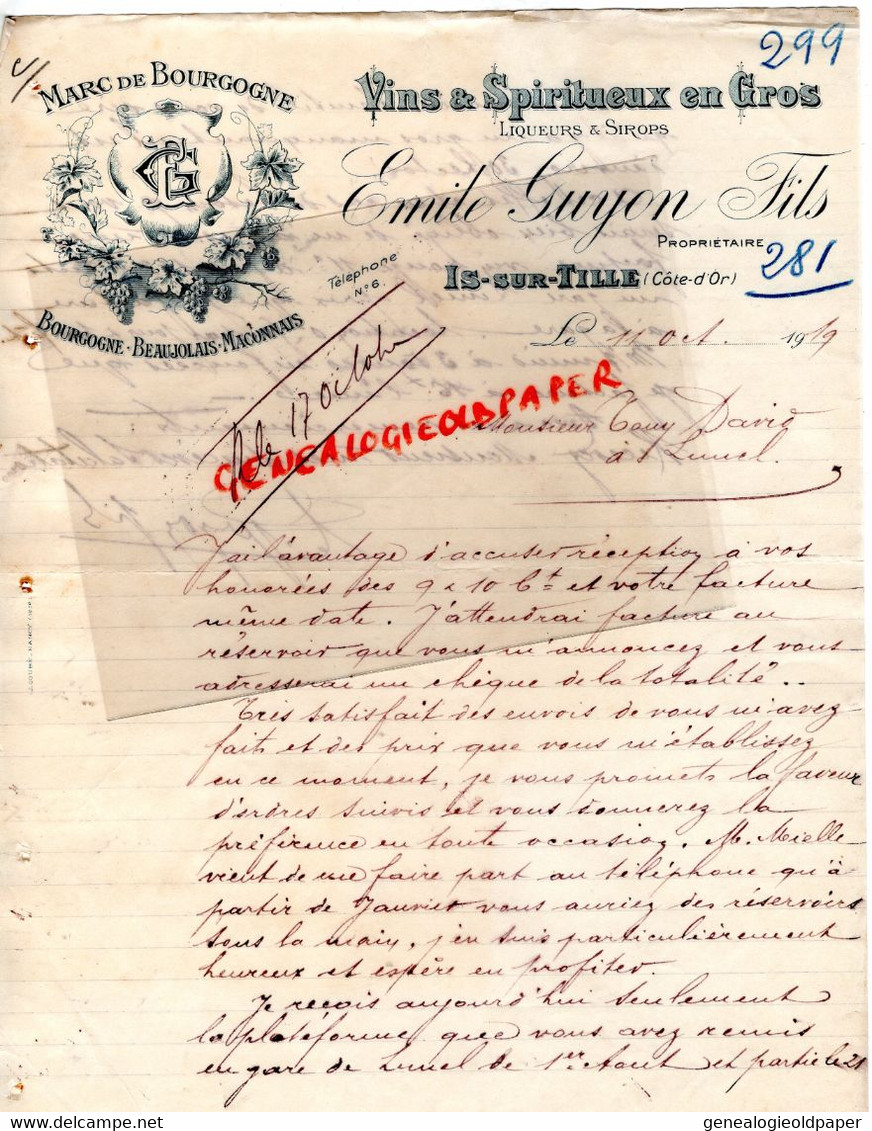 299
MARC DE BOURGOGNE
Vins & Spiritueux en Gros
LIQUEURS & SIROPS
Emile Guyon Fils
PROPRIÉTAIRE
IS-SUR-TILLE (Côte-d'Or)
281
Téléphone
N° 6.
BOURGOGNE - BEAUJOLAIS - MACONNAIS
Le 11 Oct. 1919
17 Octobre
GENEALOGIEOLDPAPER
Monsieur Tony David
à Lunel.
J'ai l'avantage d'accuser réception à vos
honorées des 9 & 10 Ct et votre facture
même date. J'attendrai facture au
réservoir que vous m'annoncez et vous
adresserai un chèque de la totalité..
Très satisfait des envois de vous m'avez
faits et des prix que vous m'établissez
en ce moment, je vous promets la faveur
d'ordres suivis et vous donnerez la
préférence en toute occasion. M. Mielle
vient de me faire part au téléphone qu'à
partir de Janvier vous auriez des réservoirs
sous la main, j'en suis particulièrement
heureux et espère en profiter.
Je reçois aujourd'hui seulement
la plateforme que vous avez remis
en gare de Lunel de 1er Aout et partie le 21
genealogieoldpaper